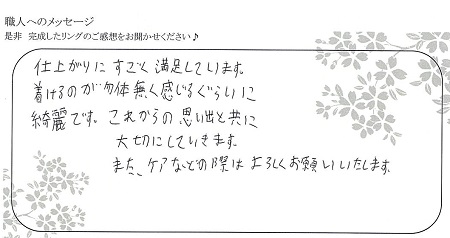 職人へのメッセージ
是非 完成したリングのご感想をお聞かせください♪
仕上がりにすごく満足しています。
着けるのが勿体無く感じるぐらいに
綺麗です。これからの思い出と共に
大切にしていきます。
また、ケアなどの際はよろしくお願いいたします。